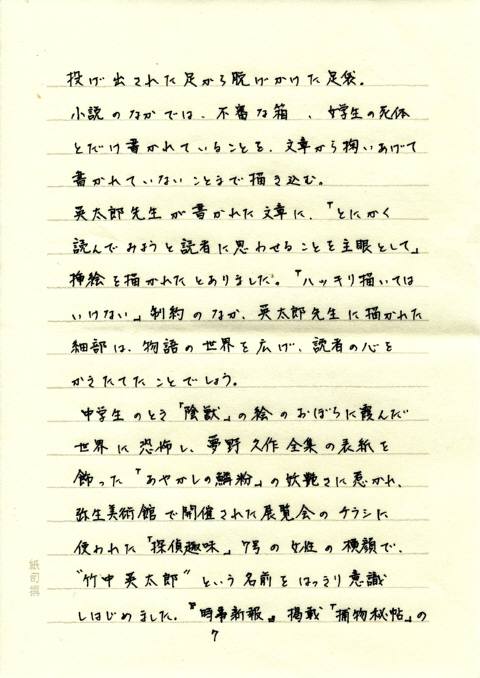 投げ出された足から脱げかけた足袋。
小説のなかでは、不審な箱、女学生の死体
とだけ書かれていることを、文章から掬いあげて
書かれていないことまで描き込む。
英太郎先生が書かれた文章に、「とにかく
読んでみようと読者に思わせることを主眼として」
挿絵を描かれたとありました。「ハッキリ描いては
いけない」制約のなか、英太郎先生に描かれた
細部は、物語の世界を広げ、読者の心を
かきたてたことでしょう。
中学生のとき「陰獣」の絵のおぼろに霞んだ
世界に恐怖し、夢野久作全集の表紙を
飾った「あやかしの鱗粉」の妖艶さに惹かれ、
弥生美術館で開催された展覧会のチラシに
使われた「探偵趣味」7号の女性の横顔で、
"竹中英太郎"という名前をはっきり意識
しはじめました。『時事新報』掲載「捕物秘帖」の
7
紙司撰